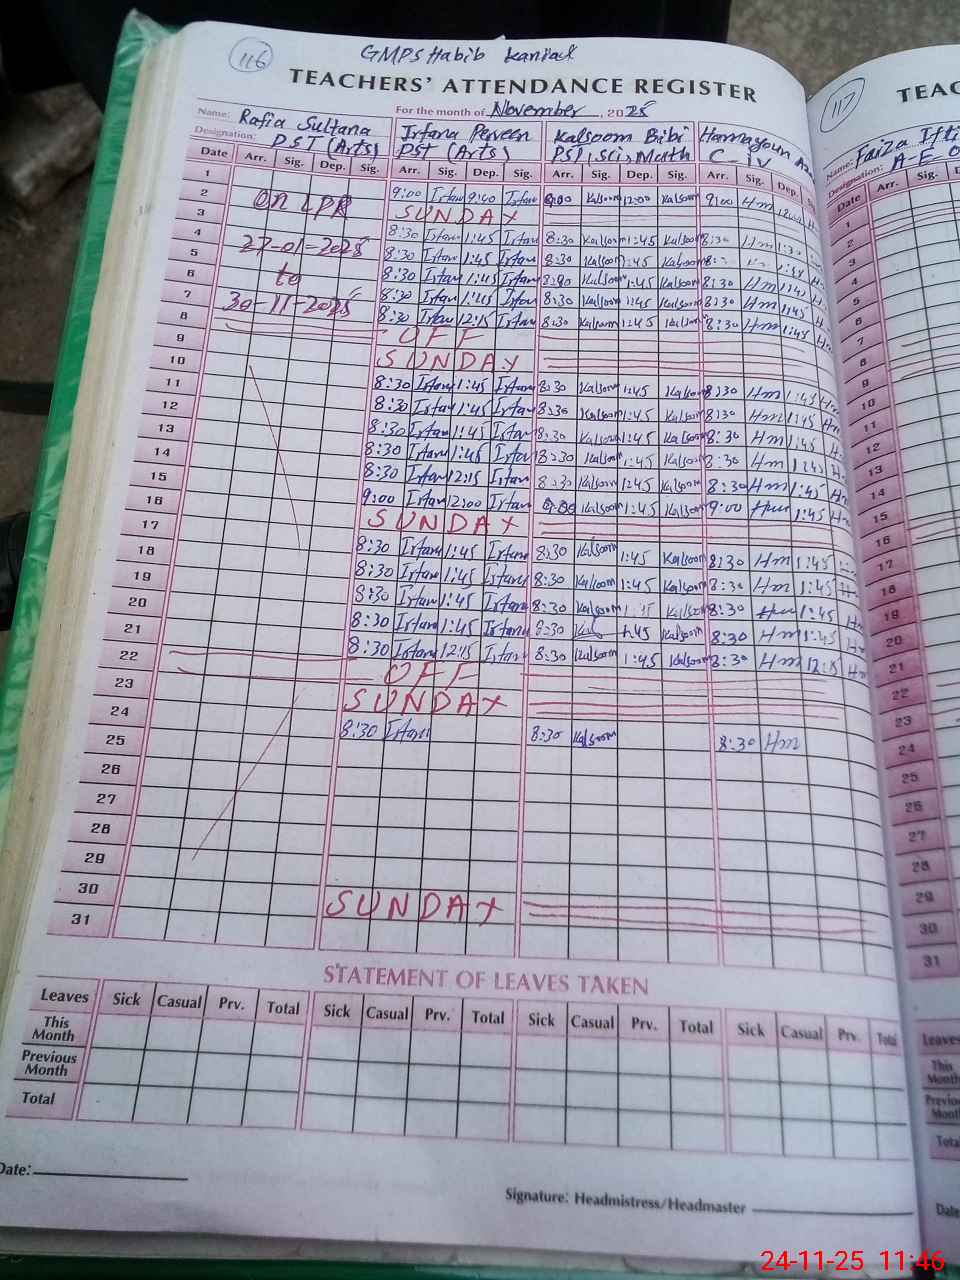 116
GMPS Habib
TEACHERS' ATTENDANCE REGISTER
For the month of November, 2025
Name: Rafia Sultana Irfana Perveen Kalsoom Bibi Hamayoun
Designation: PST (Arts) PST (Arts) PST, Sci, Math C-iv
Date Arr. Sig. Dep. Sig. Arr. Sig. Dep. Sig. Arr. Sig. Dep. Sig. Arr. Sig. Dep.
1 9:00 Irfan 9:40 Irfan Kalsoom 12:00 Kalsoom 9:00 Hm
2 on LPR SUNDAY
3 8:30 Irfan 1:45 Irfan 8:30 Kalsoom 1:45 Kalsoom 8:30 Hm
4 27-01-2025 8:30 Irfan 1:45 Irfan 8:30 Kalsoom 1:45 Kalsoom
5 to 8:30 Irfan 1:45 Irfan Kalsoom 1:45 Kalsoom 8:30 Hm 1:45
6 30-11-2025 8:30 Irfan 1:45 Irfan 8:30 Kalsoom 1:45 Kalsoom 8:30 Hm 1:45
7 8:30 Irfan 12:15 Irfan 8:30 Kalsoom 1:45 Kalsoom 8:30 Hm 1:45
8 OFF
9 SUNDAY
10 8:30 Irfan 1:45 Irfan 8:30 Kalsoom 1:45 Kalsoom 8:30 Hm 1:45 Hm
11 8:30 Irfan 1:45 Irfan 8:30 Kalsoom 1:45 Kalsoom 8:30 Hm 1:45 Hm
12 8:30 Irfan 1:45 Irfan 8:30 Kalsoom 1:45 Kalsoom 8:30 Hm 1:45
13 8:30 Irfan 1:45 Irfan 8:30 Kalsoom 1:45 Kalsoom 8:30 Hm 1:45
14 8:30 Irfan 12:15 Irfan 8:30 Kalsoom 1:45 Kalsoom 8:30 Hm 1:45 Hm
15 9:00 Irfan 12:00 Irfan Kalsoom 1:45 Kalsoom 9:00 Hm 1:45 Hm
16 SUNDAY
17 8:30 Irfan 1:45 Irfan 8:30 Kalsoom 1:45 Kalsoom 8:30 Hm 1:45
18 8:30 Irfan 1:45 Irfan 8:30 Kalsoom 1:45 Kalsoom 8:30 Hm 1:45
19 8:30 Irfan 1:45 Irfan 8:30 Kalsoom Kalsoom 8:30 Hm 1:45 Hm
20 8:30 Irfan 1:45 Irfan 8:30 Kal 1:45 Kalsoom 8:30 Hm 1:45 Hm
21 8:30 Irfan 12:15 Irfan 8:30 Kalsoom 1:45 Kalsoom 8:30 Hm 12:15 Hm
22 OFF
23 SUNDAY
24 8:30 Irfan 8:30 Kalsoom 8:30 Hm
25
26
27
28
29
30 SUNDAY
31
STATEMENT OF LEAVES TAKEN
Leaves Sick Casual Prv. Total Sick Casual Prv. Total Sick Casual Prv. Total Sick Casual Prv. Total
This Month
Previous Month
Total
Date:
Signature: Headmistress/Headmaster
117
Name: Faiza
Designation:
Date Arr. Sig.
1
2
3
4
5
6
7
8
9
10
11
12
13
14
15
16
17
18
19
20
21
22
23
24
25
26
27
28
29
30
31
Leaves
This
Date
24-11-25 11:46